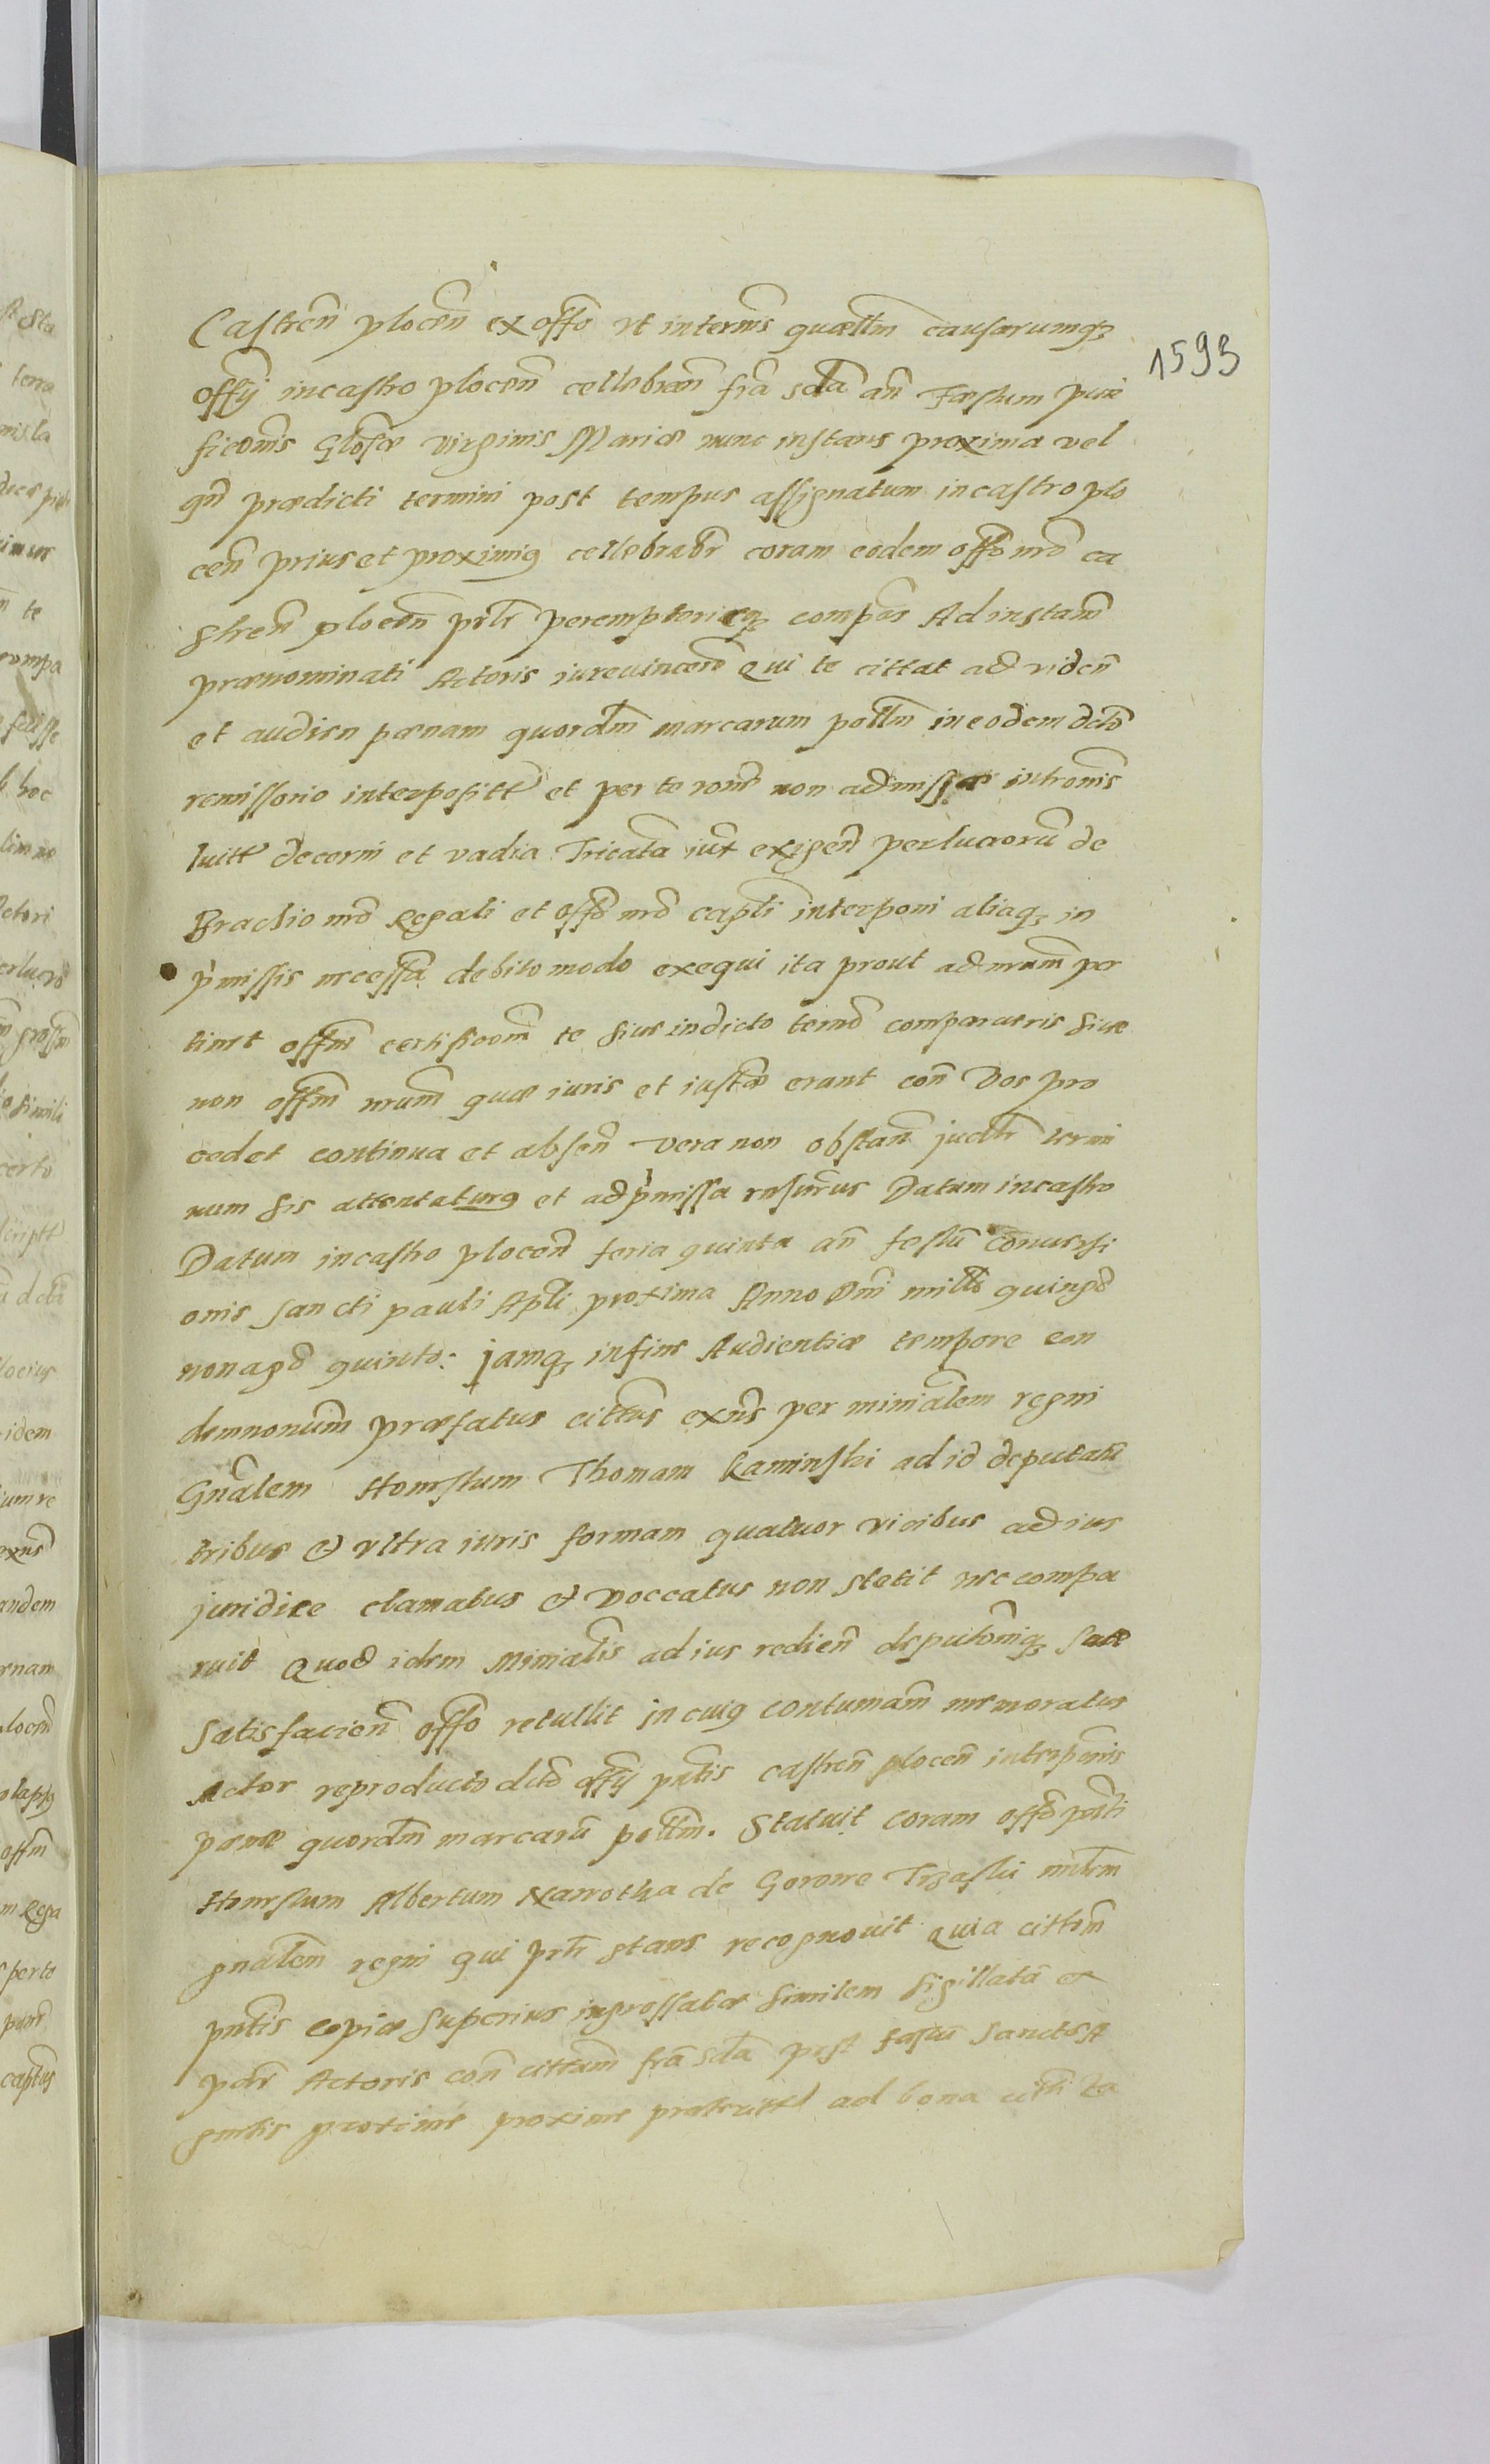 Castren̄ plocen̄ ex offō vt in termīs quaellm̄ causarumq3
1593
offīj in castro plocen̄ cellebran̄ fr̄a sc̄da an̄ Faestum puri
ficoīs Glōsæ virginis Mariæ nunc instans proxima vel
qn̄ prædicti termini post tempus assignatum in castro plo
cen̄ prius et proximi9 cellebrabr̄ coram eodem offō nr̄o ca
stren̄ plocen̄ pr̄lr peremptorieq3 compās Ad instan̄
prænominati Actoris iure vincen̄ Qui te cittat ad viden̄
et audien pænam quordm̄ marcarum pollm̄ in eodem dcto
remissorio interposittt et per te rone non admissæ intromis
luitt decerni et vadia Tricatā iuxt exigen̄ perlucorū de
Brachio nr̄o Regali et offō nr̄o captli interponi aliaq3 in
pmissis necessā debito modo exequi ita prout ad nrūm per
tinet offm̄ certificom̄ te siue in dicto termō comparueris siue
non offm̄ nrūm quæ iuris et iustæ erant con̄ Vos pro
cedet continua et absen̄ vera non obstan̄ judlr termi
num sis attentatur9 et ad pmissa rnsurūs Datum in castro
Datum in castro plocen̄ feria quinta an̄ festū conuersi
onis sancti pauli Apli proxima Anno Dnī millō quingō
nonagō quinto: jamq3 in fine Audientiæ tempore con
demnonum̄ præfatus cittūs exn̄s per minialem regni
Gnālem Honestum Thomam Kaminski ad id deputatū
tribus & vltra iuris formam quatuor vicibus ad ius
juridice clamatus & voccatus non stetit nec compa
ruit Quod idem Minialis ad ius redien̄ deputōniq3 satt
satisfacien̄ offō retullit in cuig contumam̄ memoratus
Actor reproducto dcto offīj pntīs castren̄ plocen̄ interponis
pænæ quordm̄ marcarū pollm̄. Statuit coram offō pnti
Honestum Albertum Nawotka de Gorowe Trzaski mīlem
gnalem regni qui prlr stans recognouit Quia cittom̄
pntis copiæ superius ingrossatæ similem sigillatā ex
pdr Actoris con̄ cittum̄ fr̄a sc̄da post festū Sanctæ A
gnetis proxime proxime præteritt ad bona citti Za